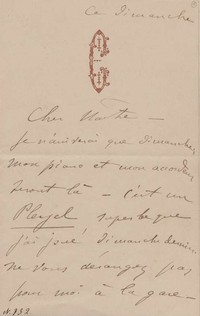 Ce Dimanche
C
Cher
Je n'arriverai que dimanche
mon piano et mon accordeur
seront là — c'est un
Pleyel superbe que
j'ai joué dimanche dernier
ne vous dérangez pas
pour moi à la gare —